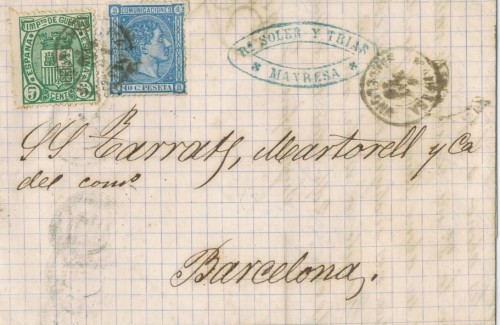 IMPTO DE GUERRA
ESPAÑA
5 CENT 5
COMUNICACIONES
10 C. PESETA
Rn SOLER Y TRIAS
MANRESA
SS. Tarrats, Martorell y Ca
del como
Barcelona.